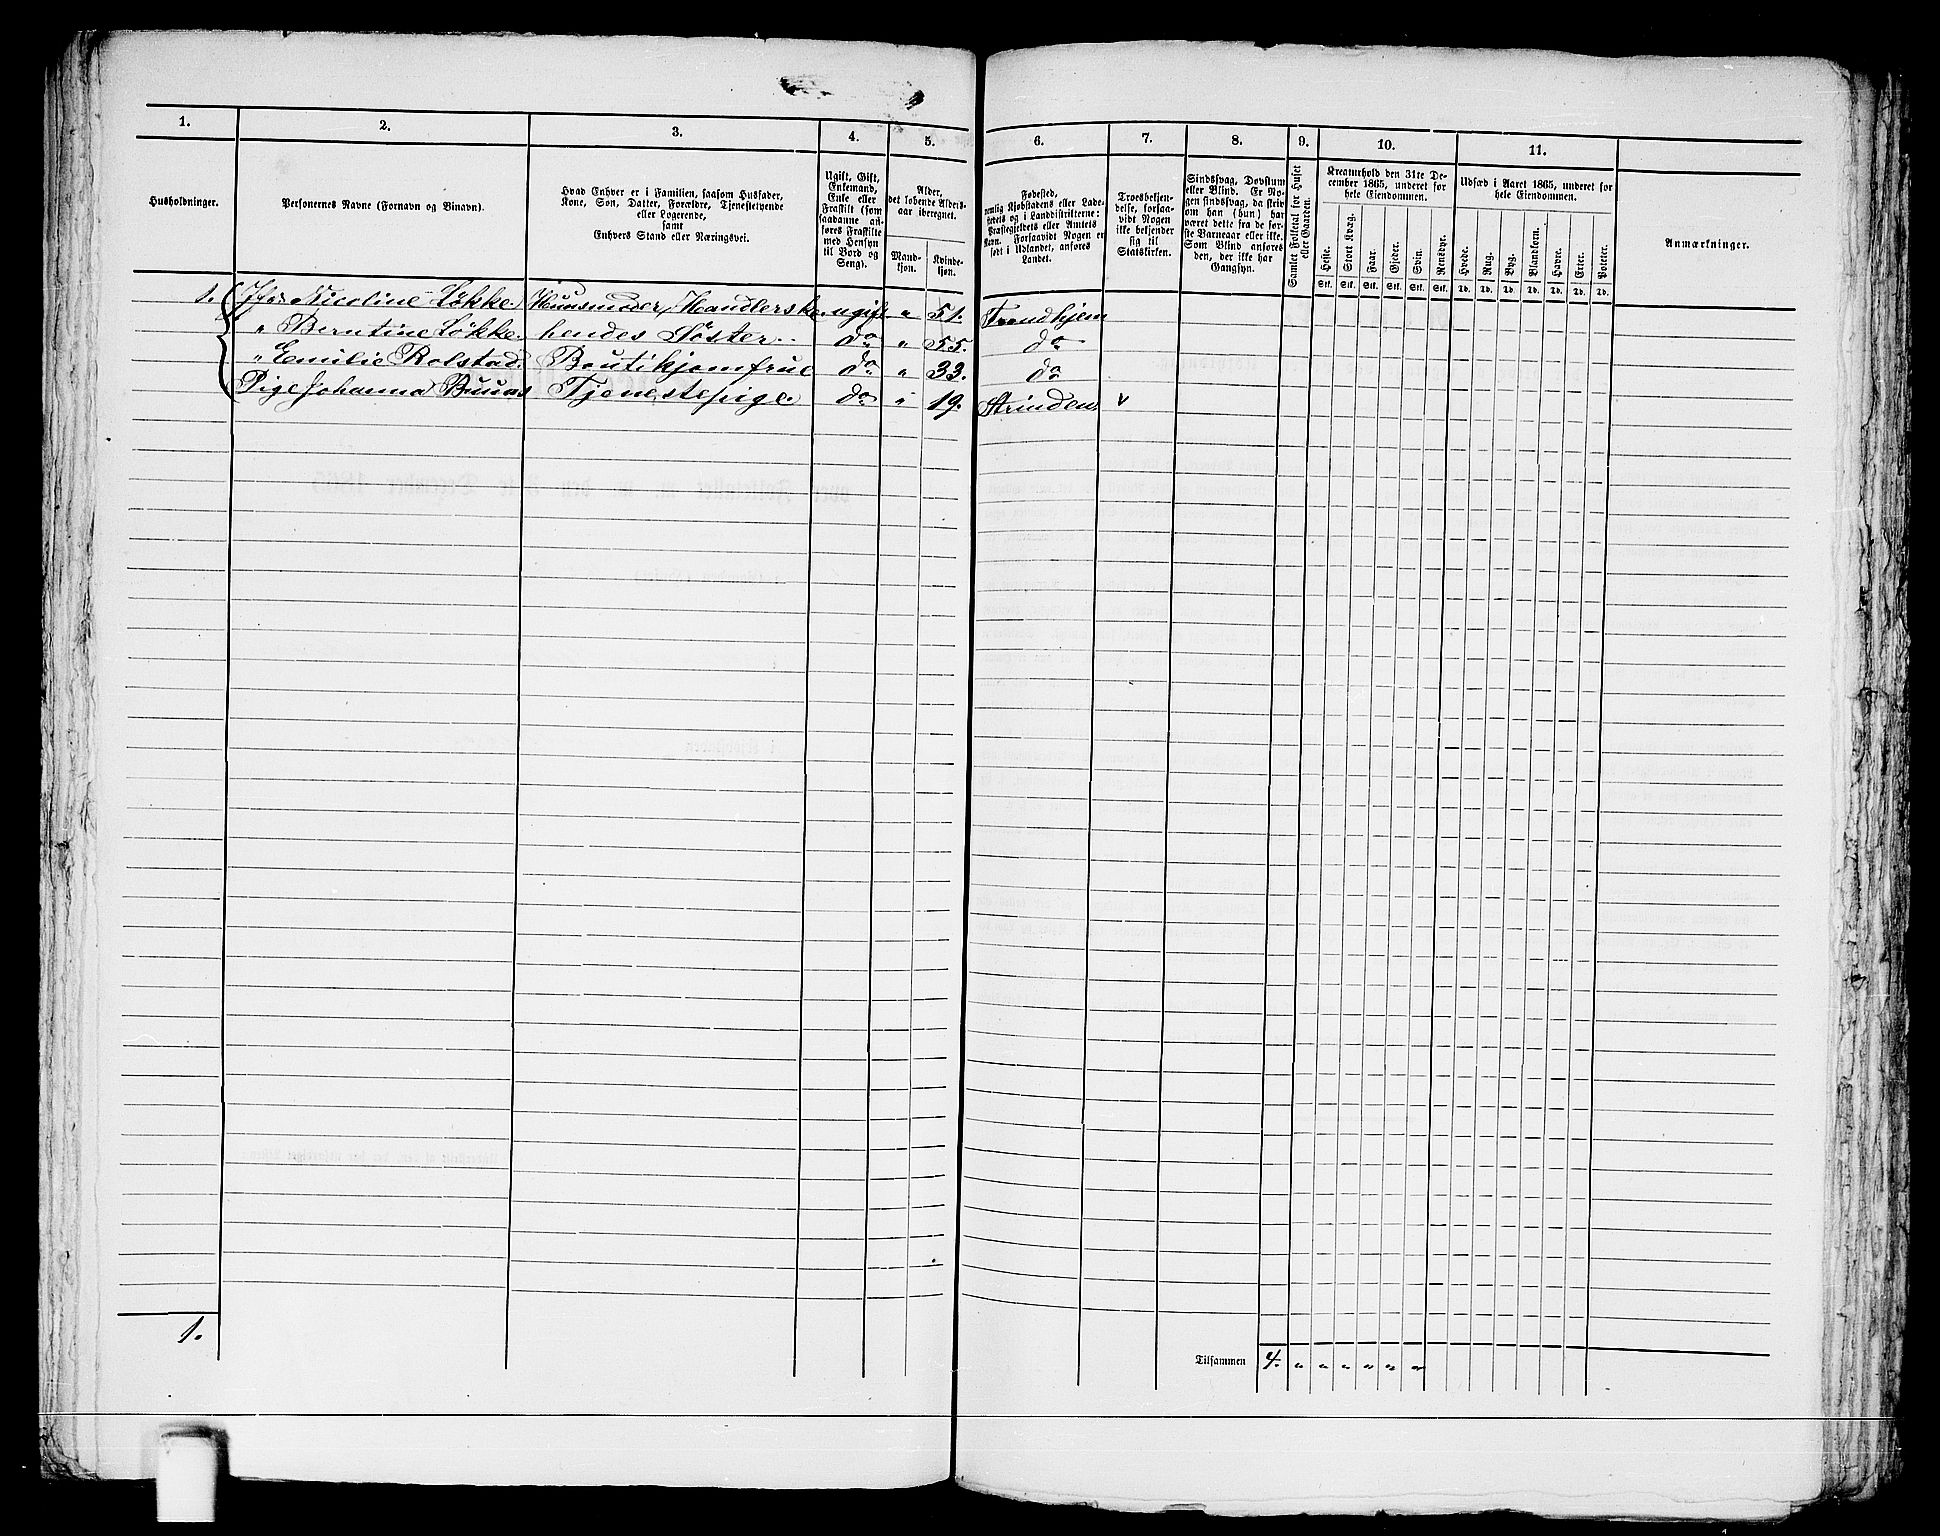 1. 2. 3. 4. 5. 6. 7. 8. 9. 10. 11.
Husholdninger.
Personernes Navne (Fornavn og Binavn).
Hvad Enhver er i Familien, saasom Husfader,
Kone, Søn, Datter, Forældre, Tjenestetyende
eller Logerende,
samt
Enhvers Stand eller Næringsvei.
Ugift, Gift,
Enkemand,
Enke eller
Fraskilt (som
saadanne an-
føres Fraskilte
med Hensyn
til Bord og
Seng).
Alder,
det løbende Alders-
aar iberegnet.
Mand-
kjøn.
Kvinde-
kjøn.
Fødested,
nemlig Kjøbstadens eller Lade-
stedets og i Landdistrikterne:
Præstegjeldets eller Amtets
Navn. Forsaavidt Nogen er
født i Udlandet, anføres
Landet.
Troesbekjen-
delse, forsaa-
vidt Nogen
ikke bekjender
sig til
Statskirken.
Sindssvag, Døvstum
eller Blind. Er No-
gen sindssvag, da skriv
om han (hun) har
været dette fra de før-
ste Barneaar eller ikke.
Som Blind anføres
den, der ikke har
Gangsyn.
Samlet Folketal for Huset
eller Gaarden.
Kreaturhold den 31te De-
cember 1865, underet for
hele Eiendommen.
Heste. Stort Kvæg. Faar. Gjeder. Svin. Rensdyr.
Stk. Stk. Stk. Stk. Stk. Stk.
Udsæd i Aaret 1865, underet for
hele Eiendommen.
Hvede. Rug. Byg. Blandkorn. Havre. Erter. Poteter.
Td. Td. Td. Td. Td. Td. Td.
Anmærkninger.
1. Jfr. Nicoline Løkke. Huusmoder, Handlerske. ugift " 51. Trondhjem
" Berntine Løkke. hendes Søster. do " 55. do
" Emilie Rolstad. Boutikjomfrue do " 33. do
Pige Johanna Tjenestepige. do " 19. Strinden. v
1.
Tilsammen 4. " " " " " "